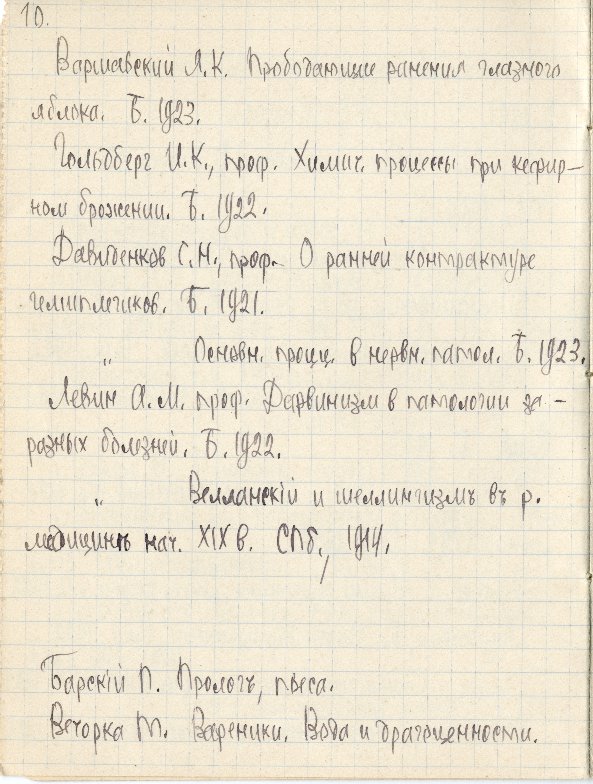 10.
Варшавский Л.К. Прободающие ранения глазного
яблока. Б. 1923.
Гольдберг И.К., проф. Химич. процессы при кефир-
ном брожении. Б. 1922.
Давиденков С.Н., проф. О ранней контрактуре
гемиплегиков. Б. 1921.
„ Основн. процц. в нервн. патол. Б. 1923.
Левин А.М. проф. Дарвинизм в патологии за-
разных болезней. Б. 1922.
„ Велланскій и шеллингизмъ въ р.
медицинѣ нач. XIX в. СПб., 1914.
Барскій П. Прологъ, пьеса.
Вечорка Т. Вареники. Вода и драгоценности.